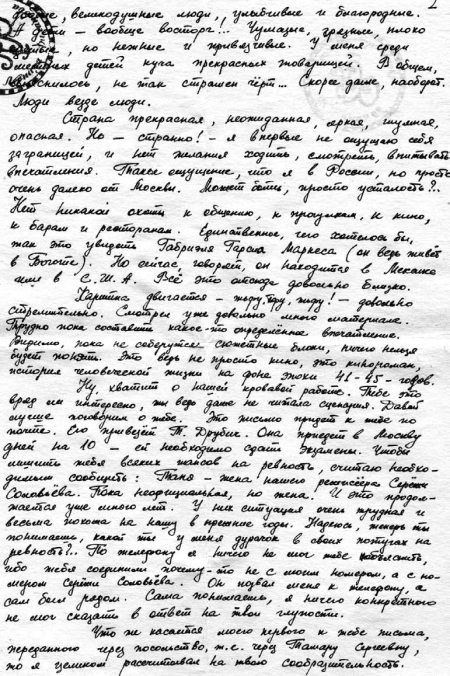 2
добрые, великодушные люди, улыбчивые и благородные.
А дети – вообще восторг!.. Чумазые, грязные, плохо
но нежные и привязчивые. У меня среди
местных детей куча прекрасных товарищей. В общем,
выяснилось, не так страшен чёрт... Скорее даже, наоборот.
Люди везде люди.
Страна прекрасная, неожиданная, яркая, шумная,
опасная. Но – странно! – я впервые не ощущаю себя
заграницей, и нет желания ходить, смотреть, впитывать
впечатления. Такое ощущение, что я в России, но просто
очень далеко от Москвы. Может быть, просто усталость?..
Нет никакой охоты к общению, к прогулкам, к кино,
к барам и ресторанам. Единственное, чего хотелось бы,
так это увидеть Габриэля Гарсиа Маркеса (он ведь живёт
в Боготе). Но сейчас, говорят, он находится в Мексике
или в С.Ш.А. Всё это отсюда довольно близко.
Картина двигается – тьфу, тьфу, тьфу! – довольно
стремительно. Смотрел уже довольно много материала.
Трудно пока составить какое-то определённое впечатление.
Видимо, пока не соберутся сюжетные блоки, ничего нельзя
будет понять. Это ведь не просто кино, это кинороман,
история человеческой жизни на фоне эпохи 41-45 – годов.
Ну, хватит о нашей кровавой работе. Тебе это
вряд ли интересно, ты ведь даже не читала сценария. Давай
лучше поговорим о тебе. Это письмо придёт к тебе по
почте. Его привезёт Т. Друбич. Она приедет в Москву
дней на 10 – ей необходимо сдать экзамены. Чтобы
лишить тебя всяких шансов на ревность, считаю необхо-
димым сообщить: Таня – жена нашего режиссёра Серёжи
Соловьёва. Пока неофициальная, но жена. И это продол-
жается уже много лет. У них ситуация очень трудная и
весьма похожа на нашу в прежние годы. Надеюсь, теперь ты
понимаешь, какой ты у меня дурачок в своих потугах на
ревность?.. По телефону я ничего не мог тебе объяснить,
ибо тебя соединили почему-то не с моим номером, а с но-
мером Серёжи Соловьёва. Он позвал меня к телефону, а
сам был рядом. Сама понимаешь, я ничего конкретного
не мог сказать в ответ на твои глупости.
Что же касается моего первого к тебе письма,
переданного через посольство, т.е. через Тамару Сергеевну,
то я целиком рассчитывал на твою сообразительность.